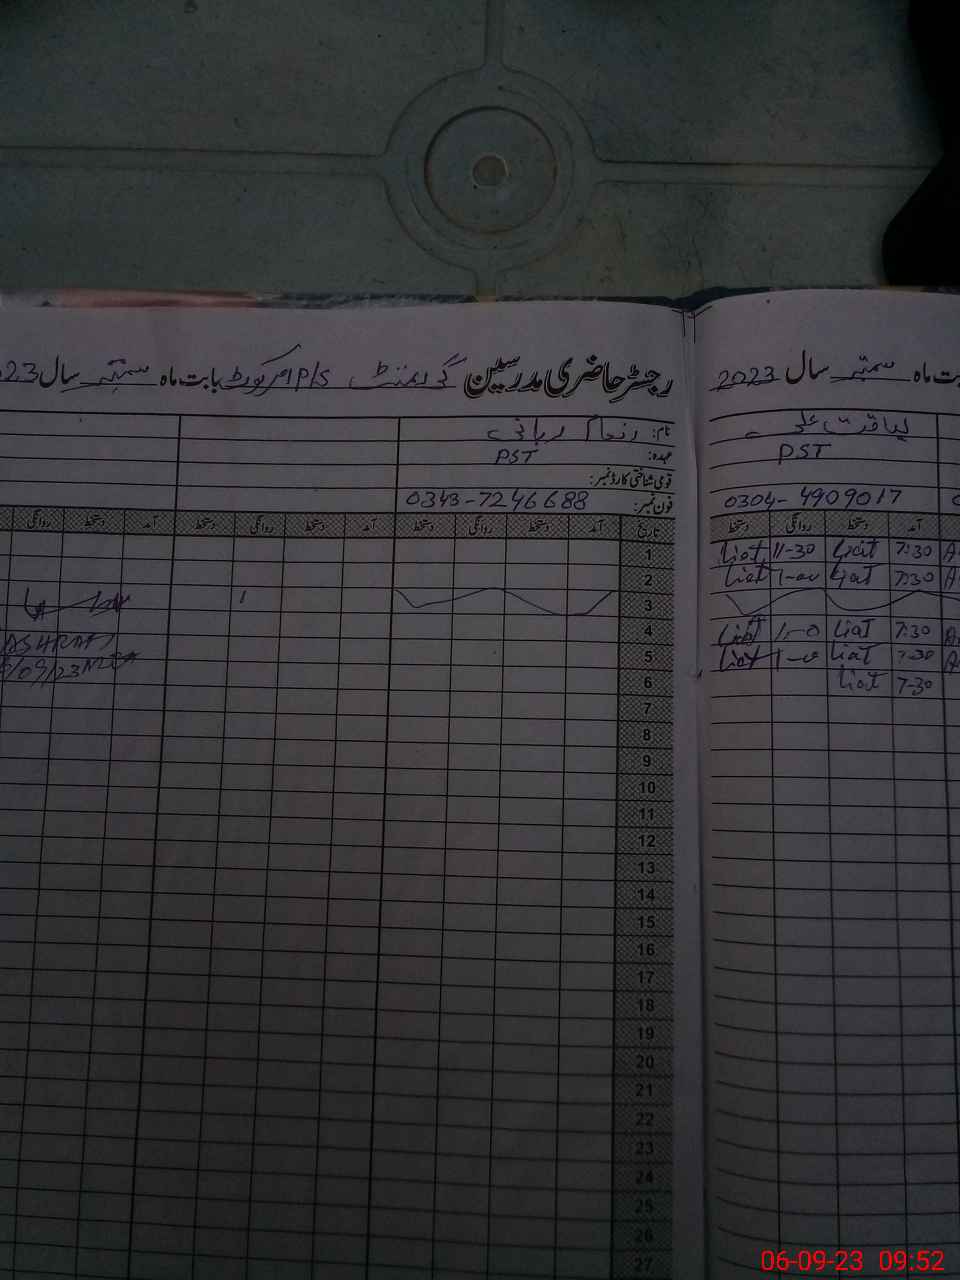 رجسٹر حاضری مدرسین گورنمنٹ P/S بابت ماہ ستمبر سال 2023
نام: ربانی
عہدہ: PST
قومی شناختی کارڈ نمبر:
فون نمبر: 0343-7246688
تاریخ آمد دستخط روانگی دستخط آمد دستخط روانگی دستخط آمد دستخط روانگی
1
2
3
4
5
6
7
8
9
10
11
12
13
14
15
16
17
18
19
20
21
22
23
24
25
26
27
ASHRAF
/09/23
بابت ماہ ستمبر سال 2023
لیاقت علی
PST
0304-4909017
آمد دستخط روانگی دستخط
7:30 Liat 11-30 Liat
7:30 Liat 1-00 Liat
7:30 Liat 1-0 Liat
7-30 Liat 1-0 Liat
7-30 Liat
06-09-23 09:52